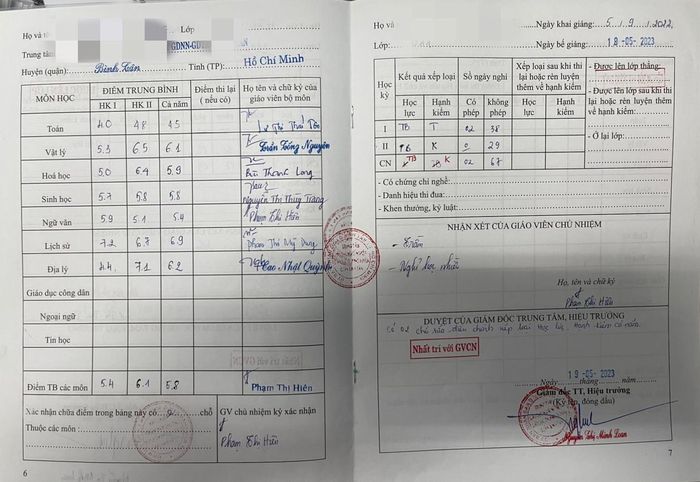 Họ và tê Lớp
Trung tâm GDNN-GD
Huyện (quận): Bình Tân Tỉnh (TP): Hồ Chí Minh
MÔN HỌC
ĐIỂM TRUNG BÌNH
HK I HK II Cả năm
Điểm thi lại ( nếu có)
Họ tên và chữ ký của giáo viên bộ môn
Toán 4.0 4.8 4.5
Vật lý 5.3 6.5 6.1 Trần Tống Nguyên
Hoá học 5.0 6.4 5.9 Bùi Thanh Long
Sinh học 5.7 5.8 5.8 Nguyễn Thị Thùy Trang
Ngữ văn 5.9 5.1 5.4 Phạm Thị Hiên
Lịch sử 7.2 6.7 6.9 Phạm Thị Mỹ Dung
Địa lý 4.4 7.1 6.2 Cao Nhật Quỳnh
Giáo dục công dân
Ngoại ngữ
Tin học
Điểm TB các môn 5.4 6.1 5.8 Phạm Thị Hiên
Xác nhận chữa điểm trong bảng này có chỗ
Thuộc các môn
GV chủ nhiệm ký xác nhận
Phạm Thị Hiên
6
Họ và Ngày khai giảng: 5/9/2022
Lớp: Ngày bế giảng: 19-05-2023
Học kỳ
Kết quả xếp loại
Số ngày nghỉ
Xếp loại sau khi thi lại hoặc rèn luyện thêm về hạnh kiểm
Học lực Hạnh kiểm Có phép không phép Học lực Hạnh kiểm
I TB T 02 38
II TB K 0 29
CN TB K 02 67
- Được lên lớp thẳng:
- Được lên lớp sau khi thi lại hoặc rèn luyện thêm về hạnh kiểm:
- Ở lại lớp:
- Có chứng chỉ nghề:
- Danh hiệu thi đua:
- Khen thưởng, kỷ luật:
NHẬN XÉT CỦA GIÁO VIÊN CHỦ NHIỆM
- Trầm
- Nghỉ học nhiều
Họ, tên và chữ ký
Phạm Thị Hiên
DUYỆT CỦA GIÁM ĐỐC TRUNG TÂM, HIỆU TRƯỞNG
Có 02 chỗ sửa điều chỉnh xếp loại Học lực, Hạnh kiểm cả năm.
Nhất trí với GVCN
19-05-2023
Ngày tháng năm
Giám đốc TT, Hiệu trưởng
(Ký tên, đóng dấu)
Nguyễn Thị Minh Loan
7